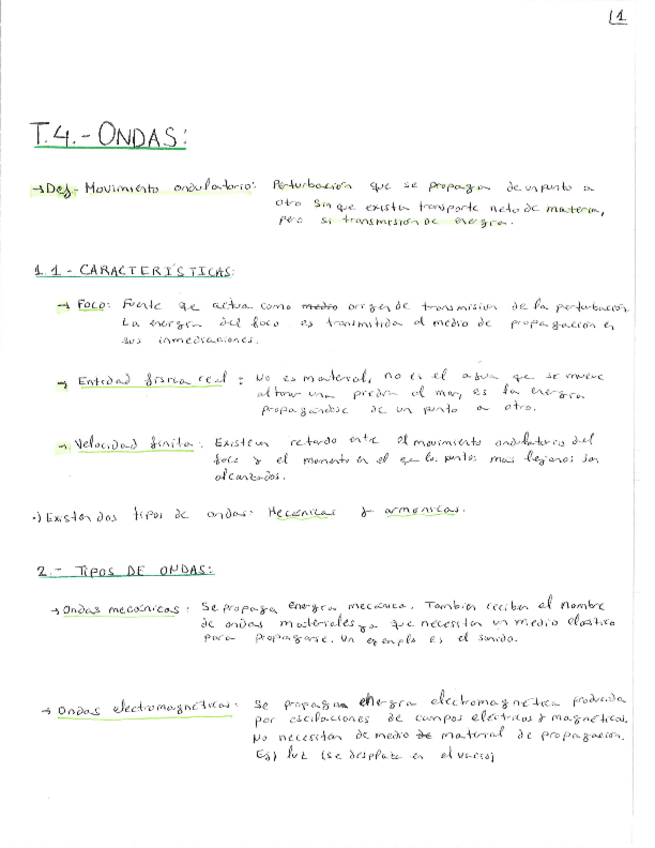 1
T.4.- ONDAS:
→ Def- Movimiento ondulatorio: Perturbación que se propaga de un punto a
otro sin que exista transporte neto de materia,
pero si transmisión de energía.
1.1- CARACTERÍSTICAS:
→ Foco: Fuente que actua como medio origen de transmision de la perturbación
La energía del foco es transmitida al medio de propagación en
sus inmediaciones.
→ Entidad física real: No es material, no es el agua que se mueve
al tirar una piedra al mar, es la energía
propagandose de un punto a otro.
→ Velocidad finita: Existe un retardo entre el movimiento ondulatorio del
foco y el momento en el que los puntos mas lejanos son
alcanzados.
·) Existen dos tipos de ondas: Mecánicas y armonicas.
2.- TIPOS DE ONDAS:
→ Ondas mecánicas: Se propaga energía mecánica. Tambien reciben el nombre
de ondas materiales ya que necesitan un medio elastico
para propagarse. Un ejemplo es el sonido.
→ Ondas electromagnéticas: Se propaga energía electromagnética producida
por oscilaciones de campos eléctricos y magnéticos.
No necesitan de medio de material de propagación.
Ej) luz (se desplaza en el vacio)